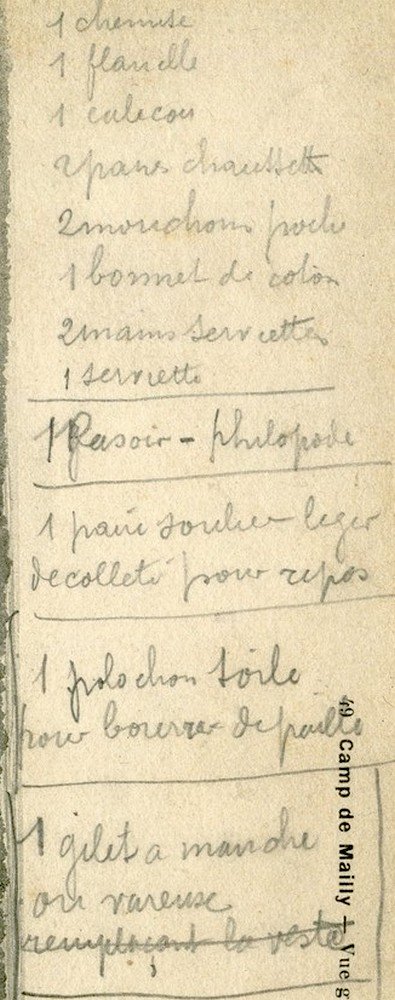 1 chemise
1 flanelle
1 calecon
2 paires chaussett
2 mouchoirs poche
1 bonnet de coton
2 mains serviettes
1 serviette
1 Rasoir - philopode
1 paire soulier leger
decolleté pour repos
1 polochon toile
pour bourrer de paille
1 gilet a manche
ou vareuse
remplaçant la veste
49 Camp de Mailly — Vue g